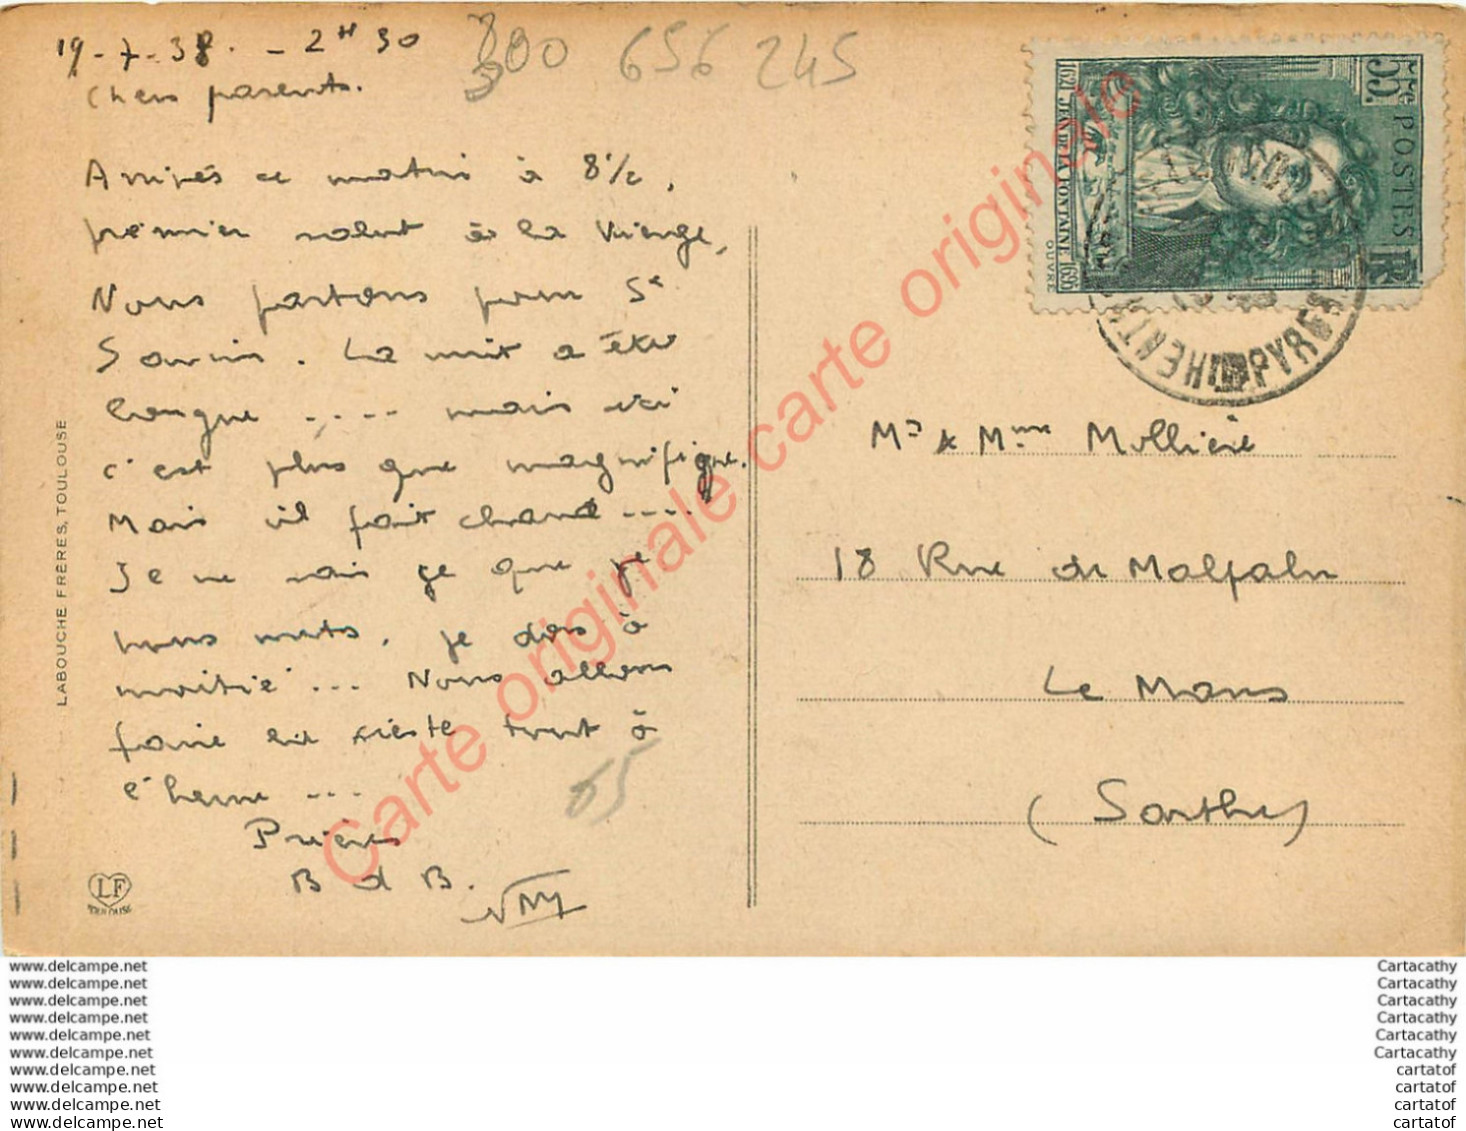 19-7-38. - 2H30
300 656 245
Chers parents.
Arrivés ce matin à 8½,
premier salut à la Vierge,
Nous partons pour St
Savin. La nuit a été
longue ..... mais ici
c'est plus que magnifique.
Mais il fait chaud .....
Je ne sais ce que je
vous mets, je dors à
moitié ... Nous allons
faire la sieste tout à
l'heure ...
Prières
B d B.
65
LABOUCHE FRÈRES, TOULOUSE
LF
TOULOUSE
1621 JEAN DE LA FONTAINE 1695
55c
POSTES
RF
OUVRÉ
PYRÉES
Mr & Mme Mollière
18 Rue de Malpalu
Le Mans
(Sarthe)
Carte originale carte originale
www.delcampe.net
www.delcampe.net
www.delcampe.net
www.delcampe.net
www.delcampe.net
www.delcampe.net
www.delcampe.net
www.delcampe.net
www.delcampe.net
www.delcampe.net
Cartacathy
Cartacathy
Cartacathy
Cartacathy
Cartacathy
Cartacathy
cartatof
cartatof
cartatof
cartatof